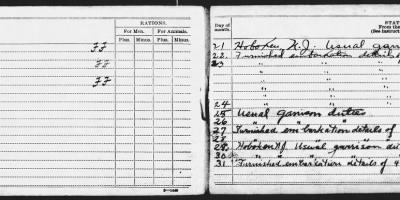 RATIONS.
For Men. For Animals.
Plus. Minus. Plus. Minus.
FF
FF
FF
3—1648
Day of month.
STA
From the
(See instruc
21 Hoboken N.J. Usual garr
22 Furnished embarkation details of
23 " " "
" " "
24 " " "
25 Usual garrison duties
26 " " "
27 Furnished embarkation details of
28 " " "
29 Hoboken N.J. Usual garrison dut
30 " " "
31 Furnished embarkation details of 4